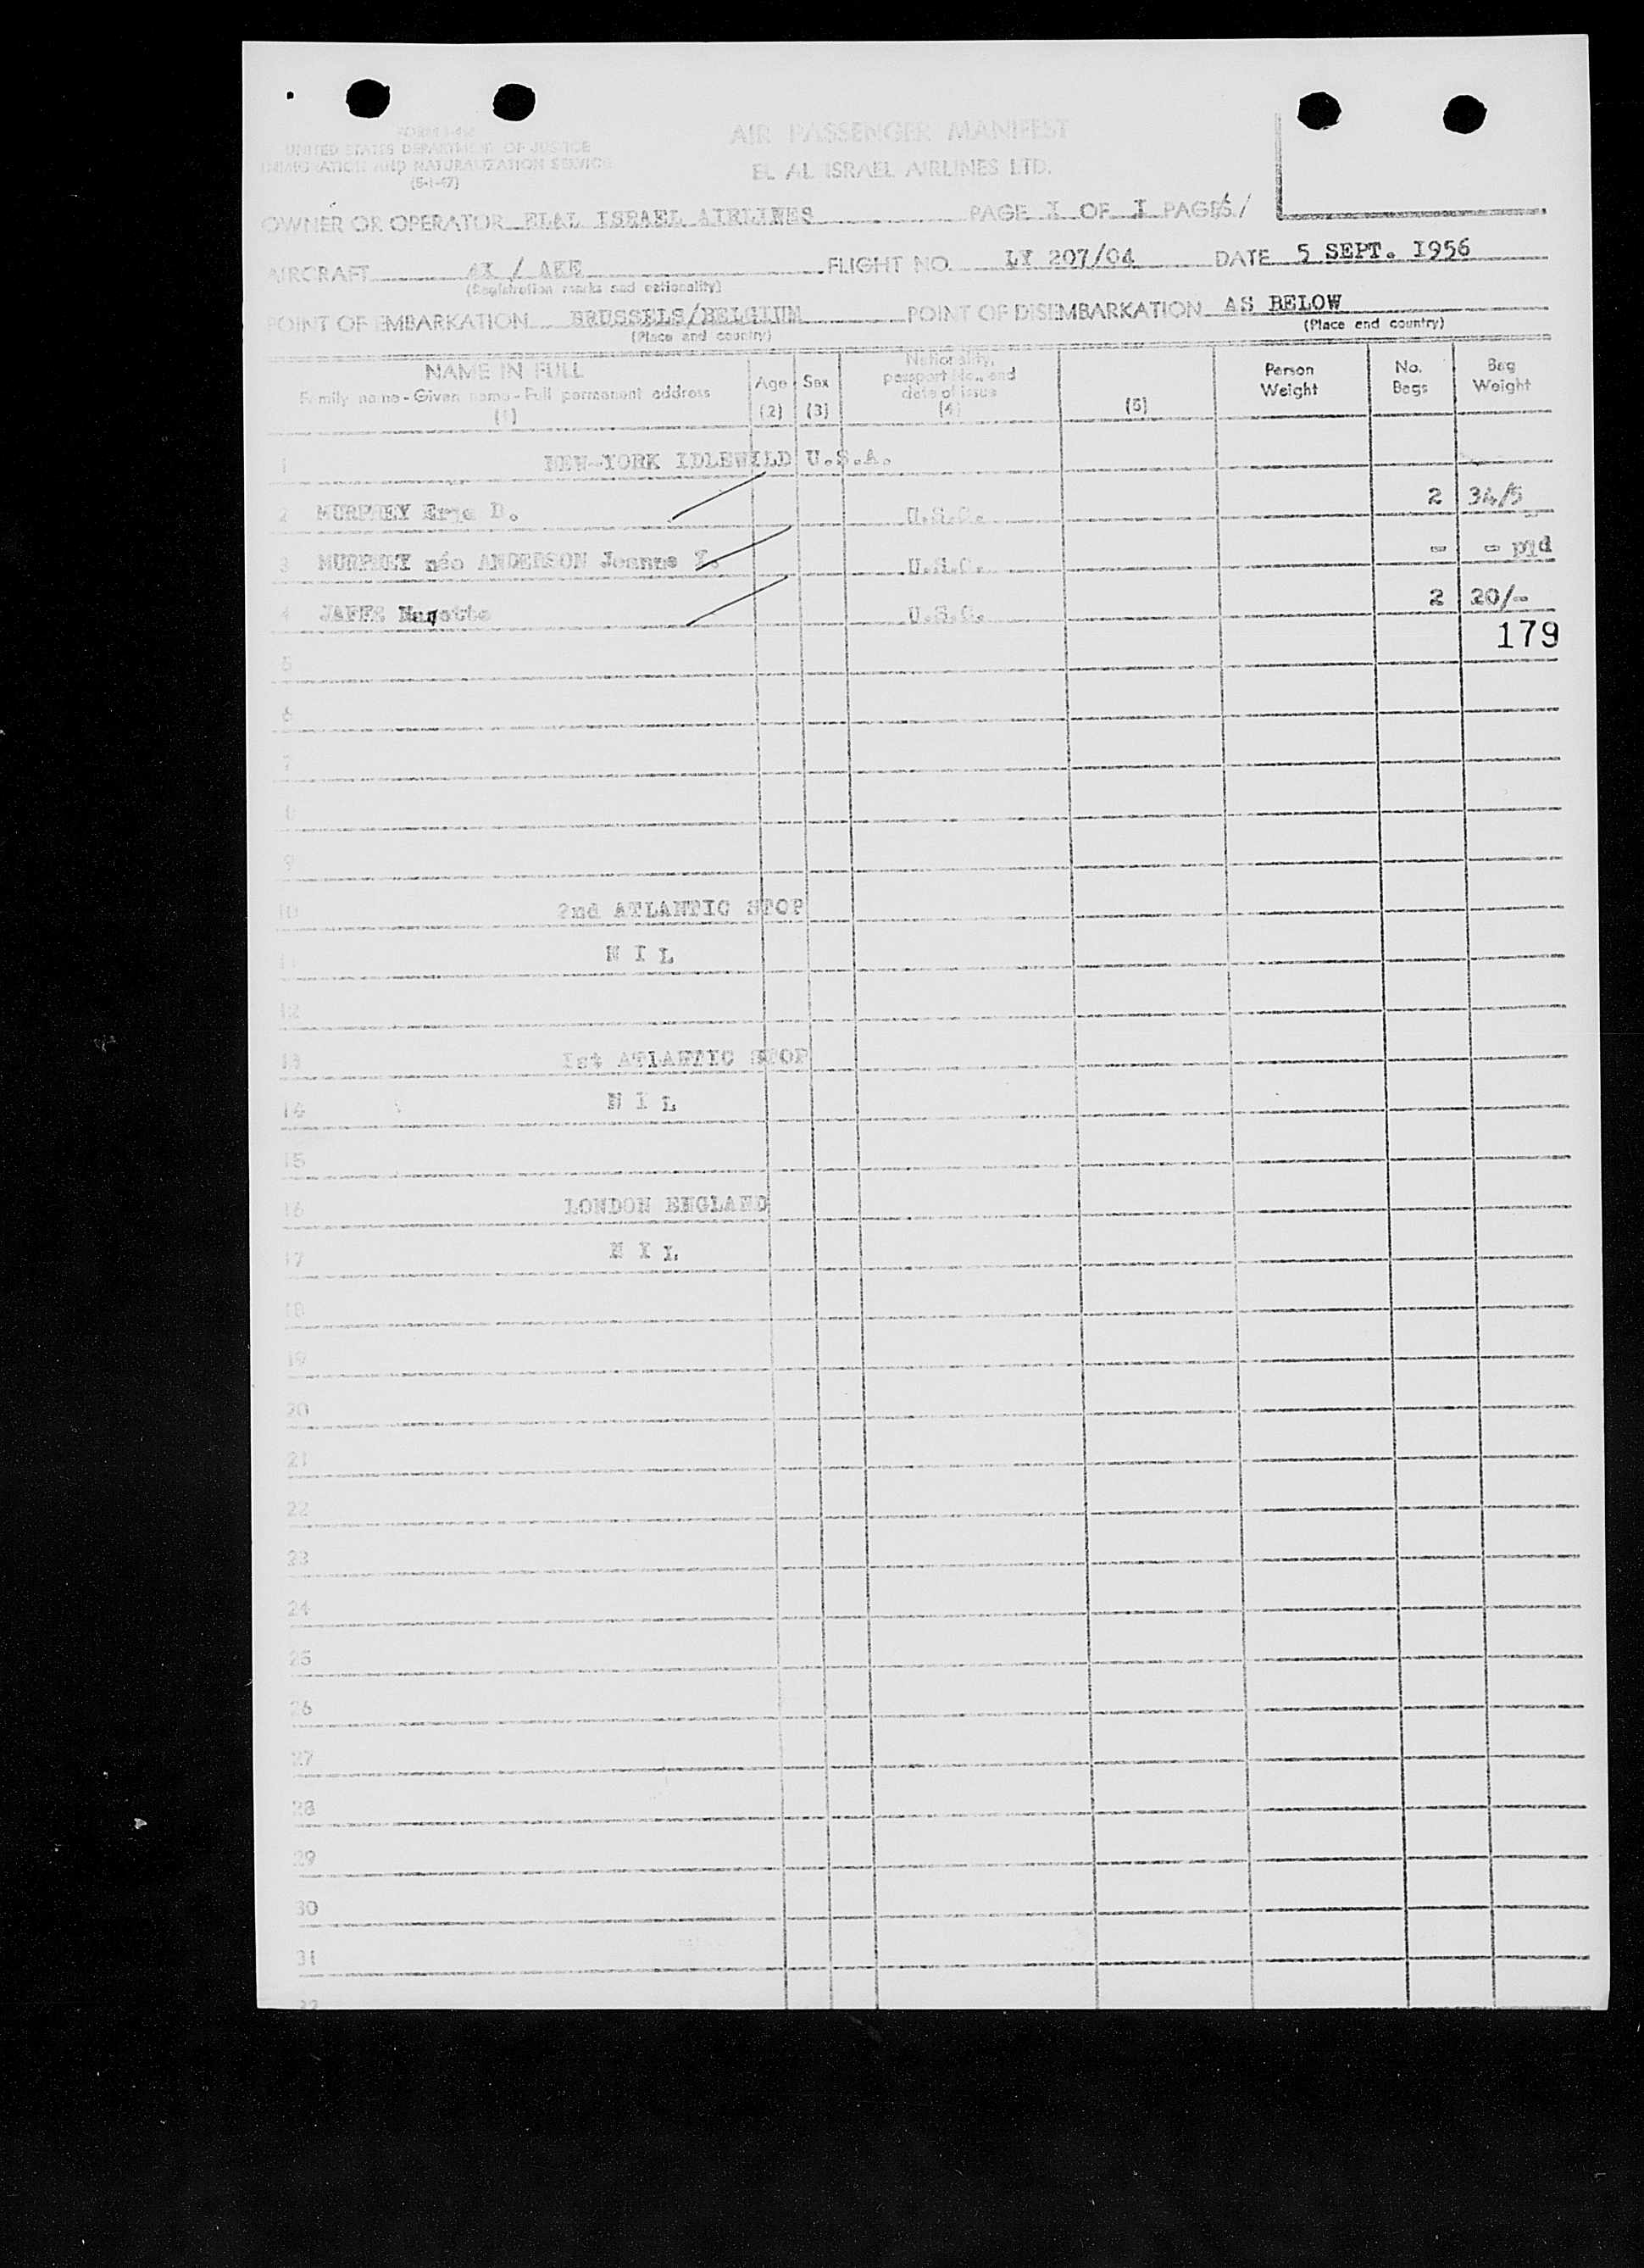 FORM I-466
UNITED STATES DEPARTMENT OF JUSTICE
IMMIGRATION AND NATURALIZATION SERVICE
(5-1-47)
AIR PASSENGER MANIFEST
EL AL ISRAEL AIRLINES LTD.
OWNER OR OPERATOR ELAL ISRAEL AIRLINES PAGE I OF I PAGES
AIRCRAFT 4X / AKE FLIGHT NO. LY 207/04 DATE 5 SEPT. I956
(Registration marks and nationality)
POINT OF EMBARKATION BRUSSELS/BELGIUM POINT OF DISEMBARKATION AS BELOW
(Place and country) (Place and country)
NAME IN FULL
Family name - Given name - Full permanent address
(1)
Age
(2)
Sex
(3)
Nationality,
passport No., and
date of issue
(4)
(5)
Person
Weight
No.
Bags
Bag
Weight
1 NEW-YORK IDLEWILD U.S.A.
2 MURPHEY D. U.S.C. 2 34/5
3 MURPHEY née ANDERSON Jeanne U.S.C. - - pld
4 U.S.C. 2 20/-
179
5
6
7
8
9
10 2nd ATLANTIC STOP
11 N I L
12
13 Ist ATLANTIC STOP
14 N I L
15
16 LONDON ENGLAND
17 N I L
18
19
20
21
22
23
24
25
26
27
28
29
30
31
32